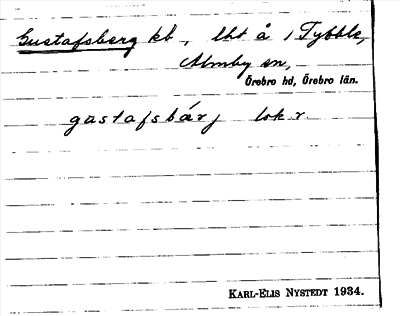 Gustafsberg kb, lht å 1 Tybble,
Almby sn,
Örebro hd, Örebro län.
gustafsbárj lok r.
KARL-ELIS NYSTEDT 1934.